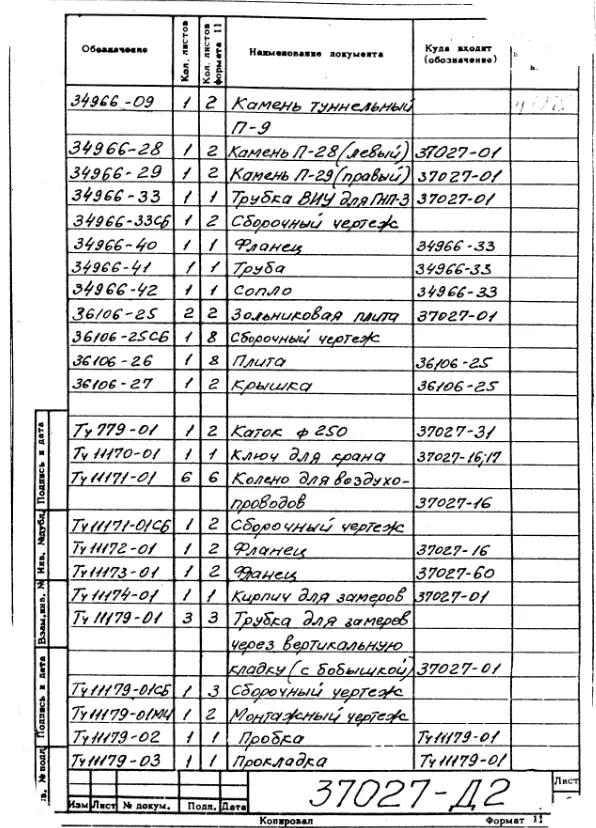 Обозначение Кол. листов Кол. листов формата 11 Наименование документа Куда входит (обозначение)
34966-09 1 2 Камень туннельный
П-9
34966-28 1 2 Камень П-28 (левый) 37027-01
34966-29 1 2 Камень П-29 (правый) 37027-01
34966-33 1 1 Трубка ВИУ для ГНП-3 37027-01
34966-33СБ 1 2 Сборочный чертеж
34966-40 1 1 Фланец 34966-33
34966-41 1 1 Труба 34966-33
34966-42 1 1 Сопло 34966-33
36106-25 2 2 Зольниковая плита 37027-01
36106-25СБ 1 8 Сборочный чертеж
36106-26 1 8 Плита 36106-25
36106-27 1 2 Крышка 36106-25
Ту 779-01 1 2 Каток ф 250 37027-31
Ту 11170-01 1 1 Ключ для крана 37027-16;17
Ту 11171-01 6 6 Колено для воздухо-
проводов 37027-16
Ту 11171-01СБ 1 2 Сборочный чертеж
Ту 11172-01 1 2 Фланец 37027-16
Ту 11173-01 1 2 Фланец 37027-60
Ту 11174-01 1 1 Кирпич для замеров 37027-01
Ту 11179-01 3 3 Трубка для замеров
через вертикальную
кладку (с бобышкой) 37027-01
Ту 11179-01СБ 1 3 Сборочный чертеж
Ту 11179-01МЧ 1 2 Монтажный чертеж
Ту 11179-02 1 1 Пробка Ту 11179-01
Ту 11179-03 1 1 Прокладка Ту 11179-01
Подпись и дата
Инв. №дубл.
Взам. инв. №
Подпись и дата
№ подл.
37027-Д2 Лист
Изм Лист № докум. Подп. Дата
Копировал Формат 11